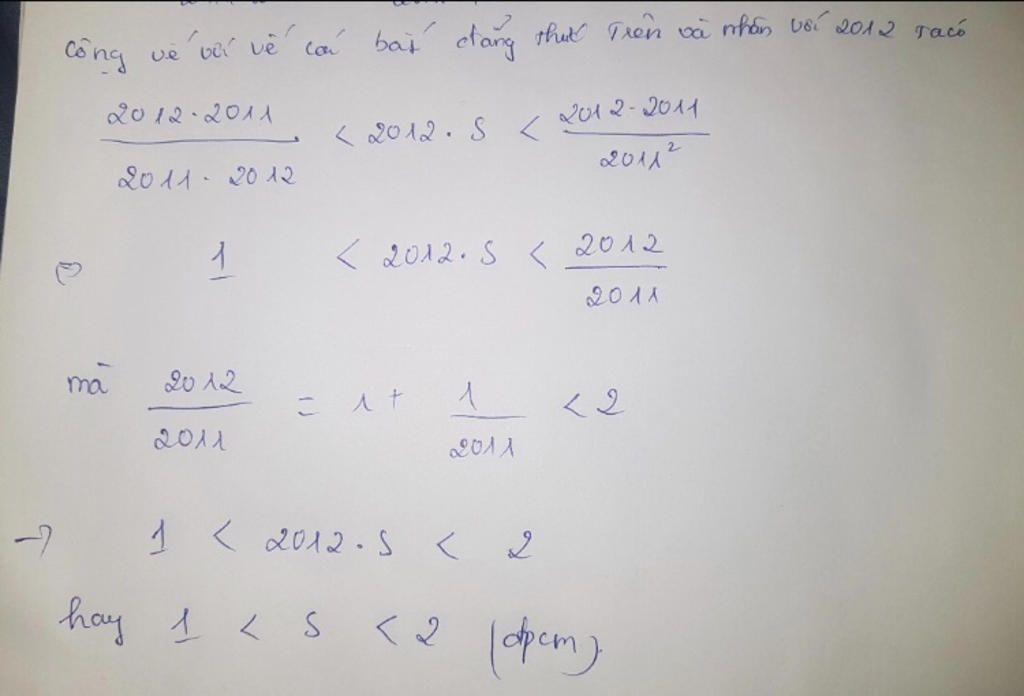 Cộng vế với vế các bất đẳng thức Trên và nhân với 2012 ta có
2012.2011 / 2011.2012 < 2012.S < 2012.2011 / 2011²
⇔ 1 < 2012.S < 2012 / 2011
mà 2012 / 2011 = 1 + 1 / 2011 < 2
→ 1 < 2012.S < 2
hay 1 < S < 2 (đpcm).